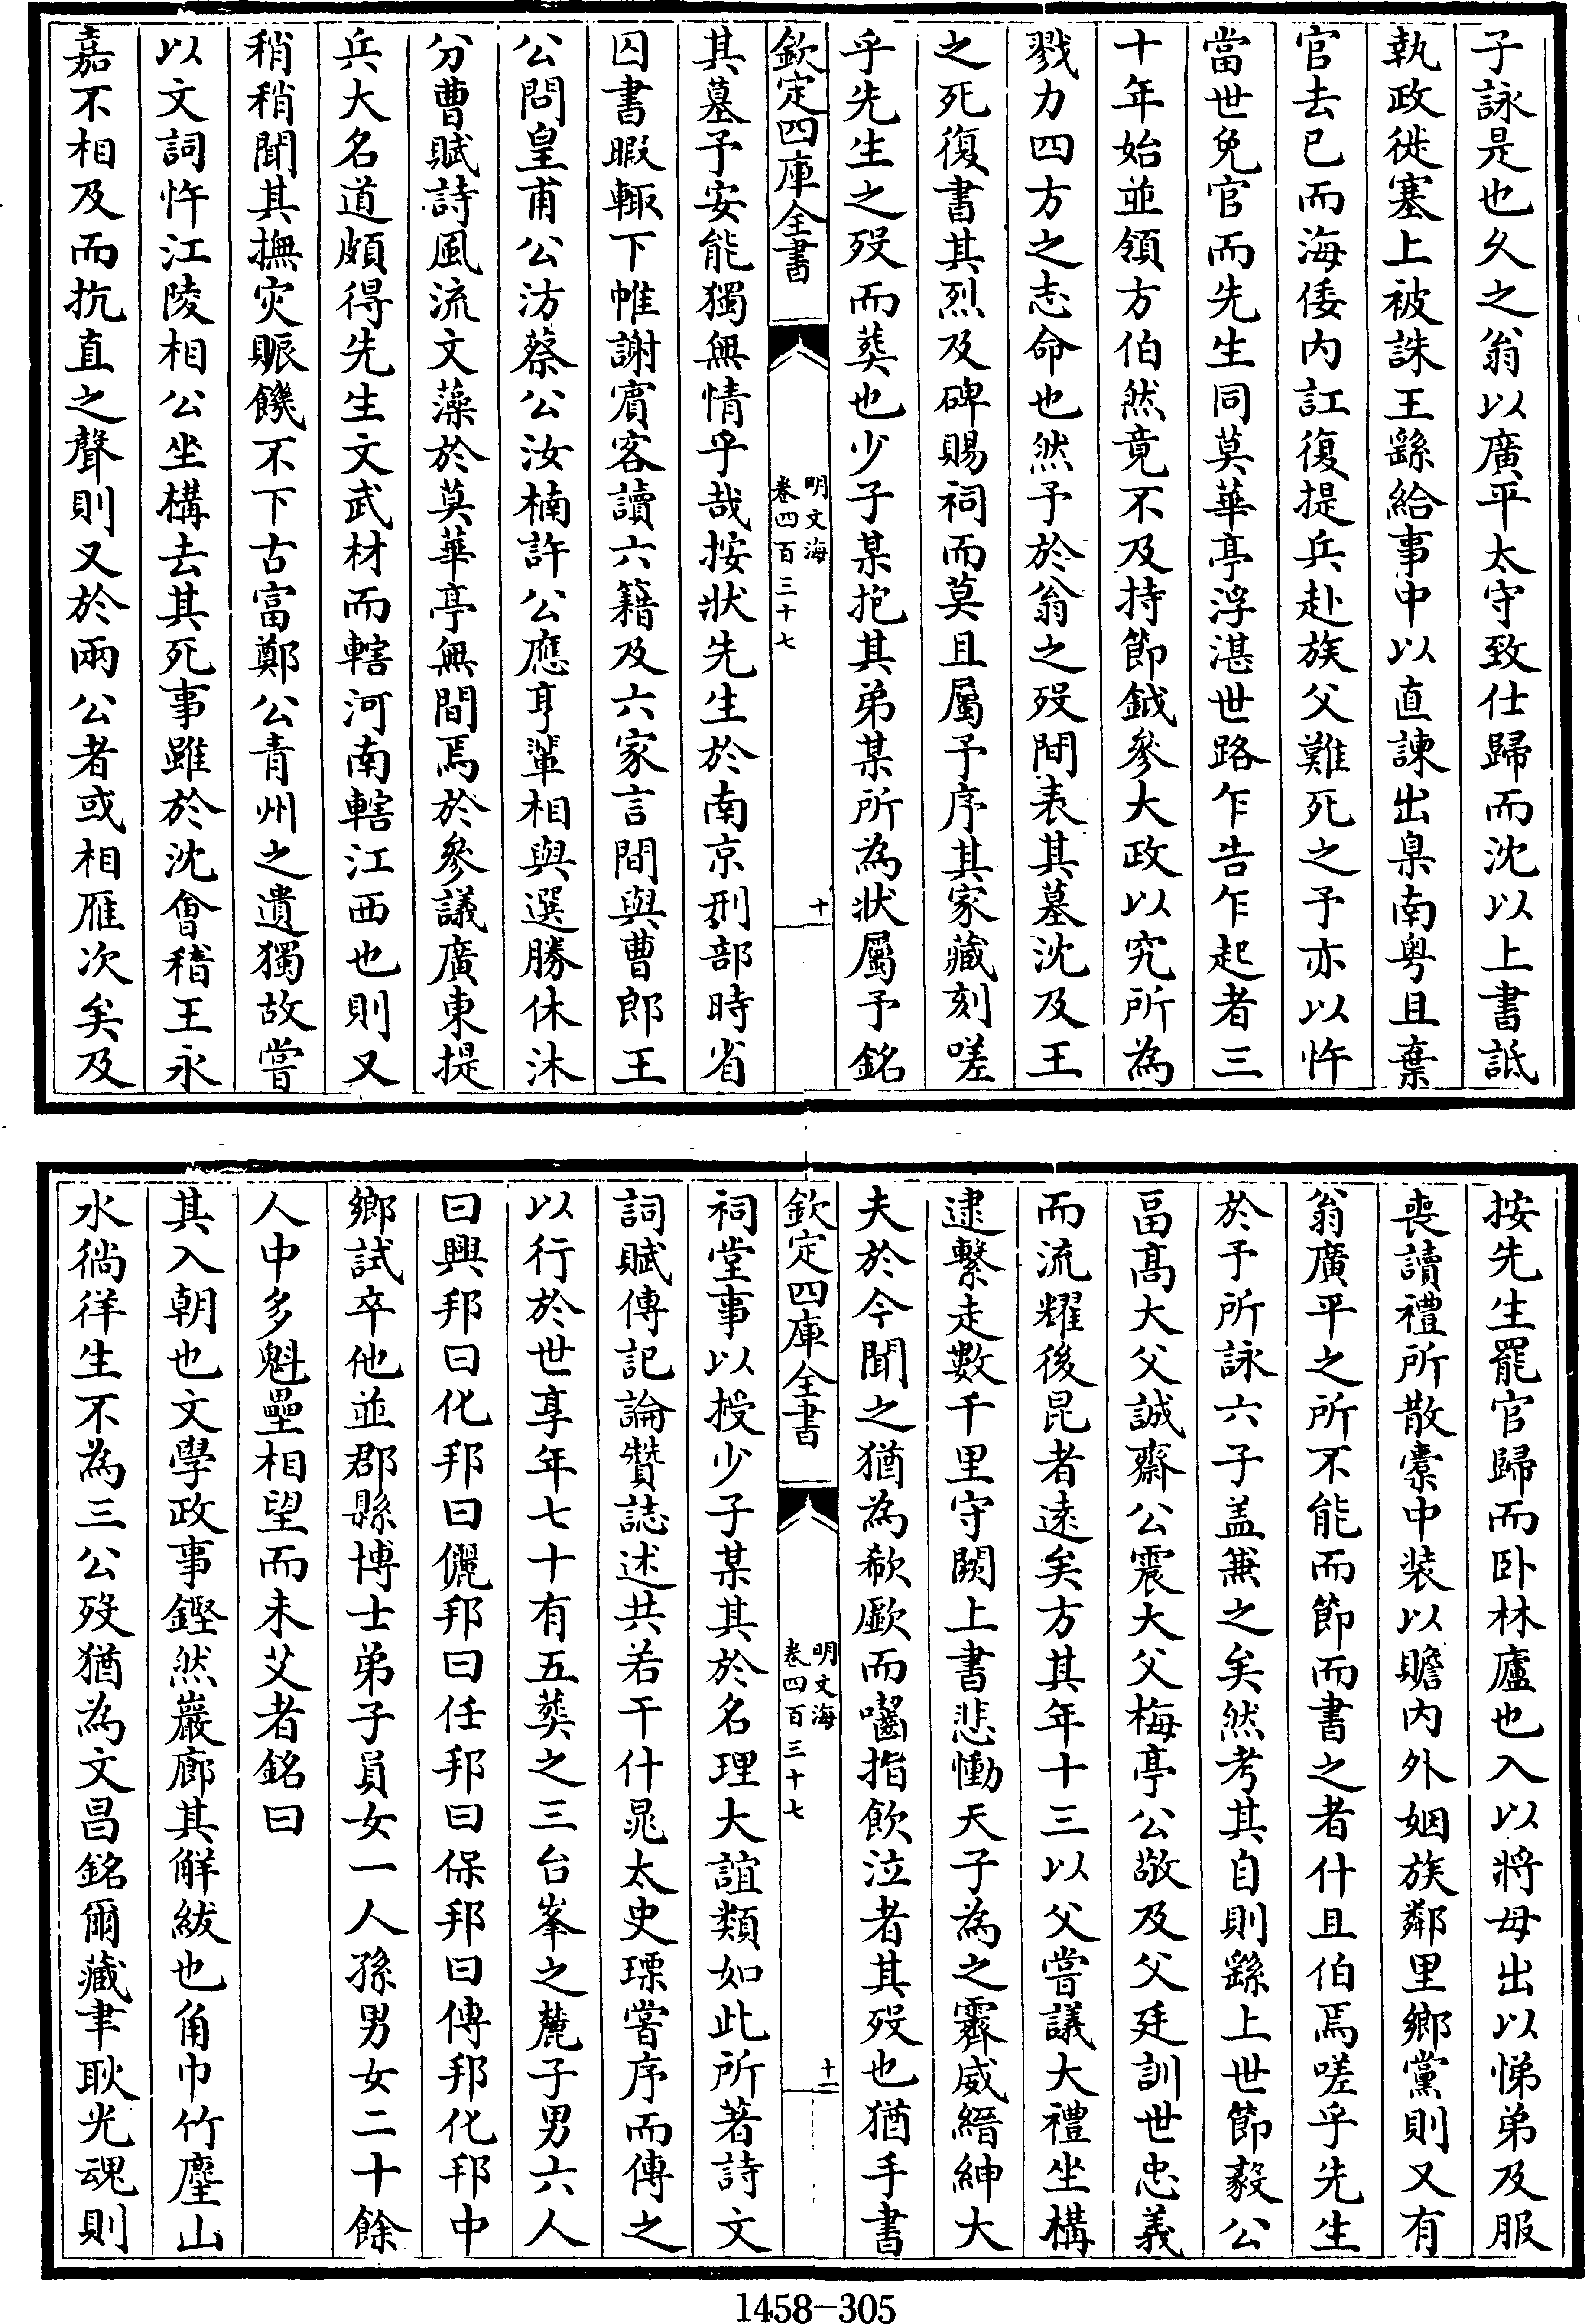 子詠是也久之翁以廣平太守致仕歸而沈以上書詆
執政徙塞上被誅王繇給事中以直諫出臬南粤且棄
官去已而海倭内訌復提兵赴族父難死之予亦以忤
當世免官而先生同莫華亭浮湛世路乍告乍起者三
十年始並領方伯然竟不及持節鉞參大政以究所為
戮力四方之志命也然予於翁之歿間表其墓沈及王
之死復書其烈及碑賜祠而莫且屬予序其家藏刻嗟
乎先生之歿而葬也少子某抱其弟某所為狀屬予銘
欽定四庫全書
明文海
卷四百三十七
十
其墓予安能獨無情乎哉按狀先生於南京刑部時省
囚書暇輙下帷謝賓客讀六籍及六家言間與曹郎王
公問皇甫公汸蔡公汝楠許公應亨輩相與選勝休沐
分曹賦詩風流文藻於莫華亭無間焉於參議廣東提
兵大名道頗得先生文武材而轄河南轄江西也則又
稍稍聞其撫灾賑饑不下古富鄭公青州之遺獨故嘗
以文詞忤江陵相公坐構去其死事雖於沈會稽王永
嘉不相及而抗直之聲則又於兩公者或相雁次矣及
按先生罷官歸而卧林廬也入以將母出以悌弟及服
喪讀禮所散橐中装以贍内外姻族鄰里鄉黨則又有
翁廣平之所不能而節而書之者什且伯焉嗟乎先生
於予所詠六子盖兼之矣然考其自則繇上世節毅公
畐高大父誠齋公震大父梅亭公敬及父廷訓世忠義
而流耀後昆者遠矣方其年十三以父嘗議大禮坐構
逮繫走數千里守闕上書悲慟天子為之霽威縉紳大
夫於今聞之猶為欷歔而嚙指飲泣者其歿也猶手書
欽定四庫全書
明文海
卷四百三十七
十一
祠堂事以授少子某其於名理大誼類如此所著詩文
詞賦傳記論贊誌述共若干什晁太史瑮嘗序而傳之
以行於世享年七十有五葬之三台峯之麓子男六人
曰興邦曰化邦曰儷邦曰任邦曰保邦曰傳邦化邦中
鄉試卒他並郡縣博士弟子員女一人孫男女二十餘
人中多魁壘相望而未艾者銘曰
其入朝也文學政事鏗然巖廊其解紱也角巾竹塵山
水徜徉生不為三公歿猶為文昌銘爾藏聿耿光魂則
1458-305